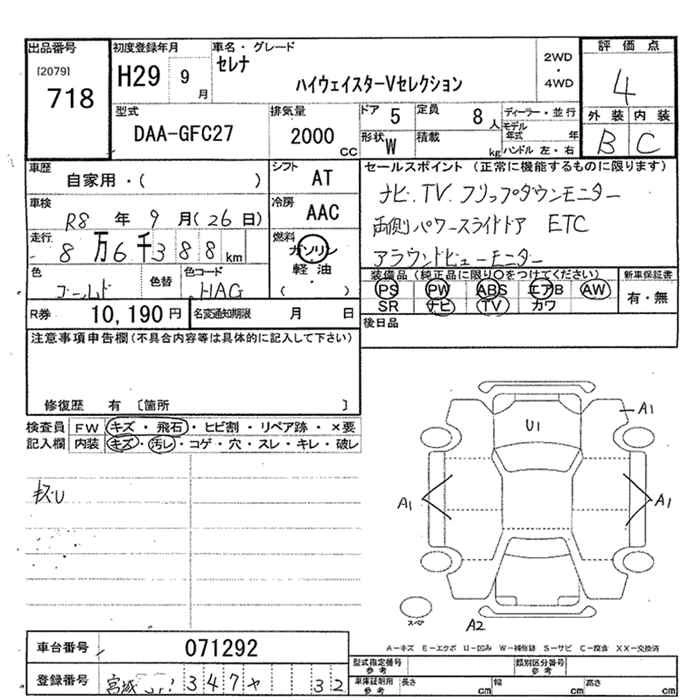 出品番号 初度登録年月 車名・グレード 評価点
[2079] 718 H29 9月 セレナ ハイウェイスターVセレクション 2WD・4WD 4
型式 排気量 ドア 5 定員 8人 ディーラー・並行 外装 内装
DAA-GFC27 2000CC 形状 W 積載 kg モデル年式 年 ハンドル 左・右 B C
車歴 シフト セールスポイント(正常に機能するものに限ります)
自家用・( ) AT ナビ. TV. フリップダウンモニター
車検 R8年9月(26日) 冷房 AAC 両側パワースライドドア ETC
走行 8万6千388km 燃料 ガソリン・軽油・( ) アラウンドビューモニター
色 ゴールド 色替 色コード HAG 装備品(純正品に限り○をつけてください) 新車保証書
PS PW ABS エアB AW 有・無
SR ナビ TV カワ
R券 10,190円 名変通知期限 月 日 後日品
注意事項申告欄(不具合内容等は具体的に記入して下さい)
修復歴 有 〔箇所 〕
検査員 FW キズ・飛石・ヒビ割・リペア跡・×要
記入欄 内装 キズ・汚レ・コゲ・穴・スレ・キレ・破レ
A1
U1
キズU
A1 A1
スペア A2
A-キズ E-エクボ U-凹み W-補修跡 S-サビ C-腐食 XX-交換済
車台番号 071292 型式指定番号 参考 類別区分番号 参考
登録番号 宮城 347 ヤ 32 車庫証明用 参考 長さ cm 幅 cm 高さ cm